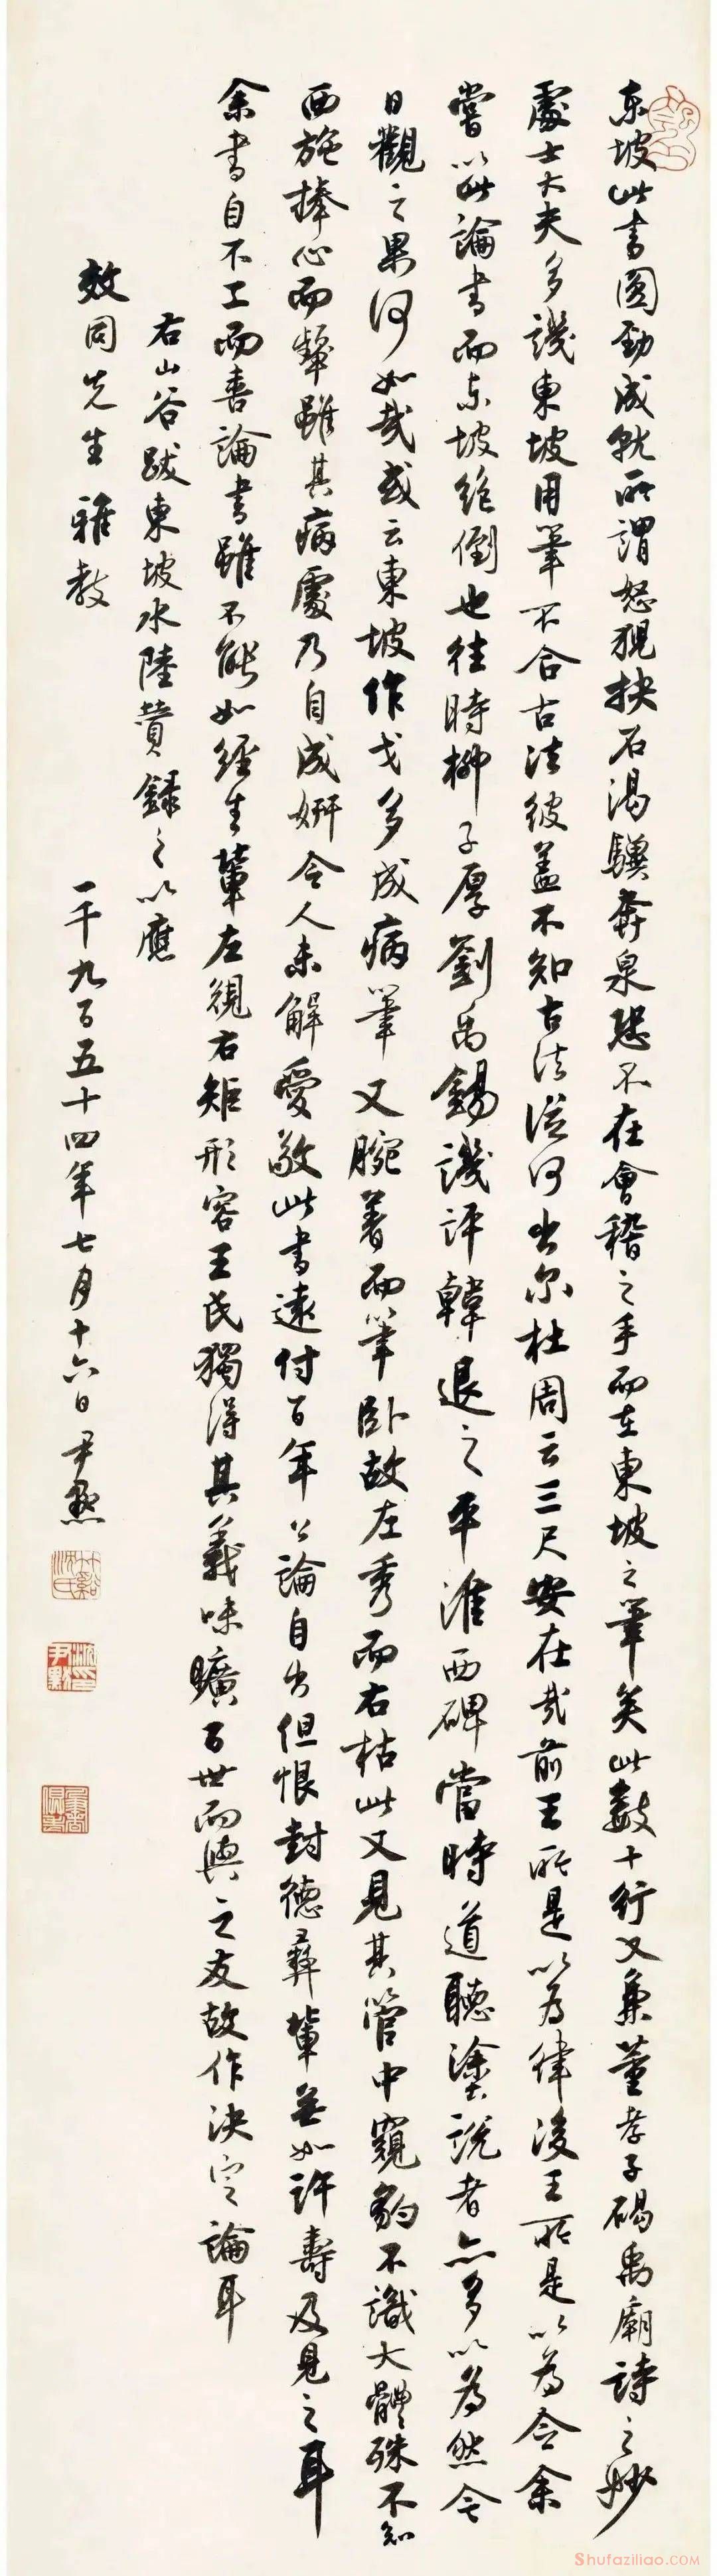 东坡此书圆劲成就所謂怒猊抉石渴驥奔泉恐不在會稽之手而在東坡之筆矣此數十行又兼董孝子碣禹廟詩之妙
處士大夫多譏東坡用筆不合古法彼蓋不知古法從何出尔杜周云三尺安在哉前王所是以為律後王所是以為令余
嘗以此論書而东坡絶倒也往時柳子厚劉禹錫譏評韓退之平淮西碑當時道聽塗說者亦多以為然今
日觀之果何如哉或云東坡作戈多成病筆又腕著而筆卧故左秀而右枯此又見其管中窺豹不識大體殊不知
西施捧心而顰雖其病處乃自成妍今人未解愛敬此書遠付百年公論自出但恨封德彝輩無如許壽及見之耳
余書自不工而喜論書雖不能如經生輩左規右矩形容王氏獨得其義味曠百世而與之友故作決定論耳
右山谷跋東坡水陸贊録之以應
效同先生雅教
一千九百五十四年七月十六日尹默
竹谿沈氏
沈尹默印
Shufaziliao.COM